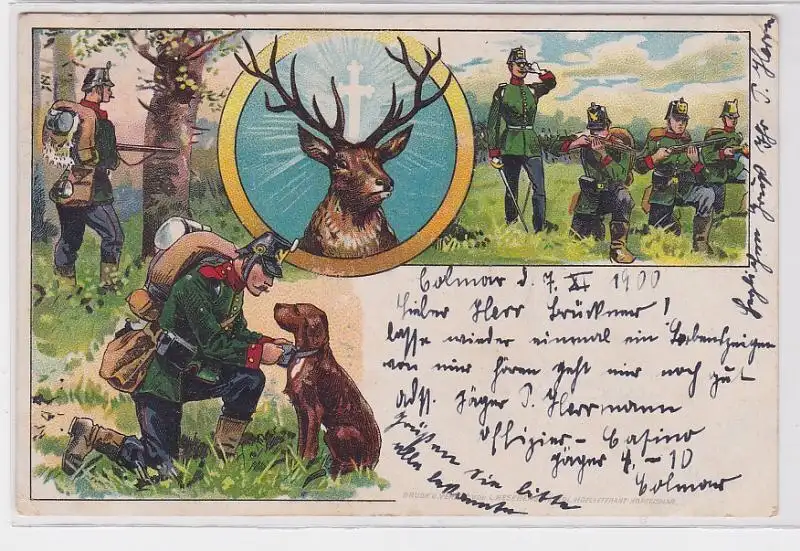 Colmar d. 7. XI 1900
Lieber Herr Brückner!
lasse wieder einmal ein Lebenszeigen
von mir hören geht mir noch gut
adss. Jäger P. Herrmann
Offizier-Casino
Jäger 4.-10
Colmar
Grüßen Sie bitte
alle bekannte
Herzlichen Gruß Ihr P. Herrm
DRUCK U. VERLAG VON